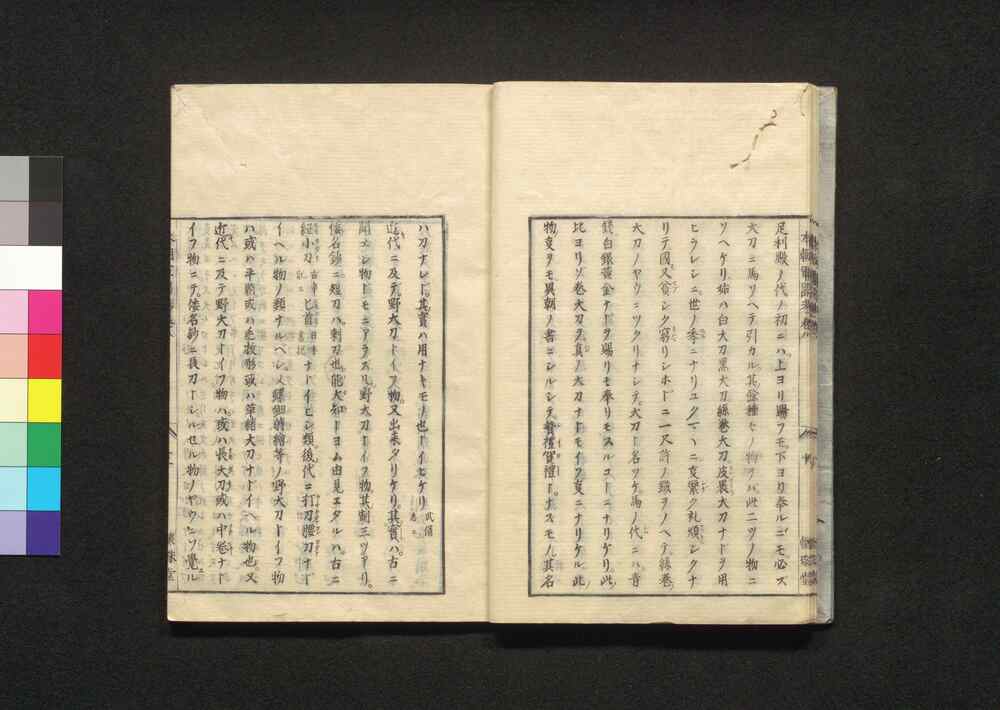 足利殿ノ代ノ初ニハ上ヨリ賜フモ下ヨリ奉ルニモ必ズ
太刀ニ馬ソヘテ引カル其餘種々ノ物ヲバ此二ツノ物ニ
ソヘケリ始ハ白太刀黒太刀絲巻太刀皮裹太刀ナドヲ用
ヒラレシニ世ノ季ニナリユクマヽニ事繁ク礼煩シクナ
リテ國又貧シク窮リシホドニ一尺許ノ鐵ヲノベテ絲巻
太刀ノヤウニツクリナシテ太刀ト名ヅケ馬ノ代ニハ青
錢白銀黄金ナドヲ賜リモ奉リモスルコトニナリケリ此
比ヨリゾ巻太刀ヲ真ノ太刀ナドモイフ事ニナリケル此
物事ヲモ異朝ノ書ニシルシテ贄禮ト ナスモノ其名
ハ刀ナレド其實ハ用ナキモノ也トイヒケリ 武備
近代ニ及テ野太刀トイフ物又出来タリケリ其實ハ古ニ
聞エシ物ドモニアラズ凡野太刀トイフ物其制三ツアリ
倭名鈔ニ短刀ハ刺刀也能太知トヨム由見エタルハ古ニ
紐小刀 匕首 ナドイヒシ類後代ニ打刀腰刀ナド
イヘル物ノ類ナルベシ又螺鈿蒔繪等ノ野太刀トイフ物
ハ或ハ平鞘或ハ毛抜形或ハ革緒太刀ナドイヘル物也又
近代ニ及テ野太刀トイフ物ハ或ハ長太刀或ハ中巻ナド
イフ物ニテ倭名鈔ニ長刀トシルセル物ノヤウニゾ覺ル